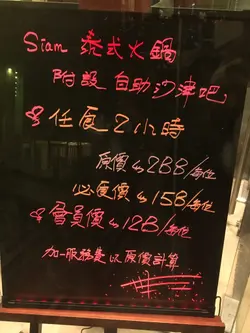 Siam 泰式火鍋
附設 自助沙律吧
任食2小時
原價 $288/每位
優惠價 $158/每位
會員價 $128/每位
加一服務費以原價計算